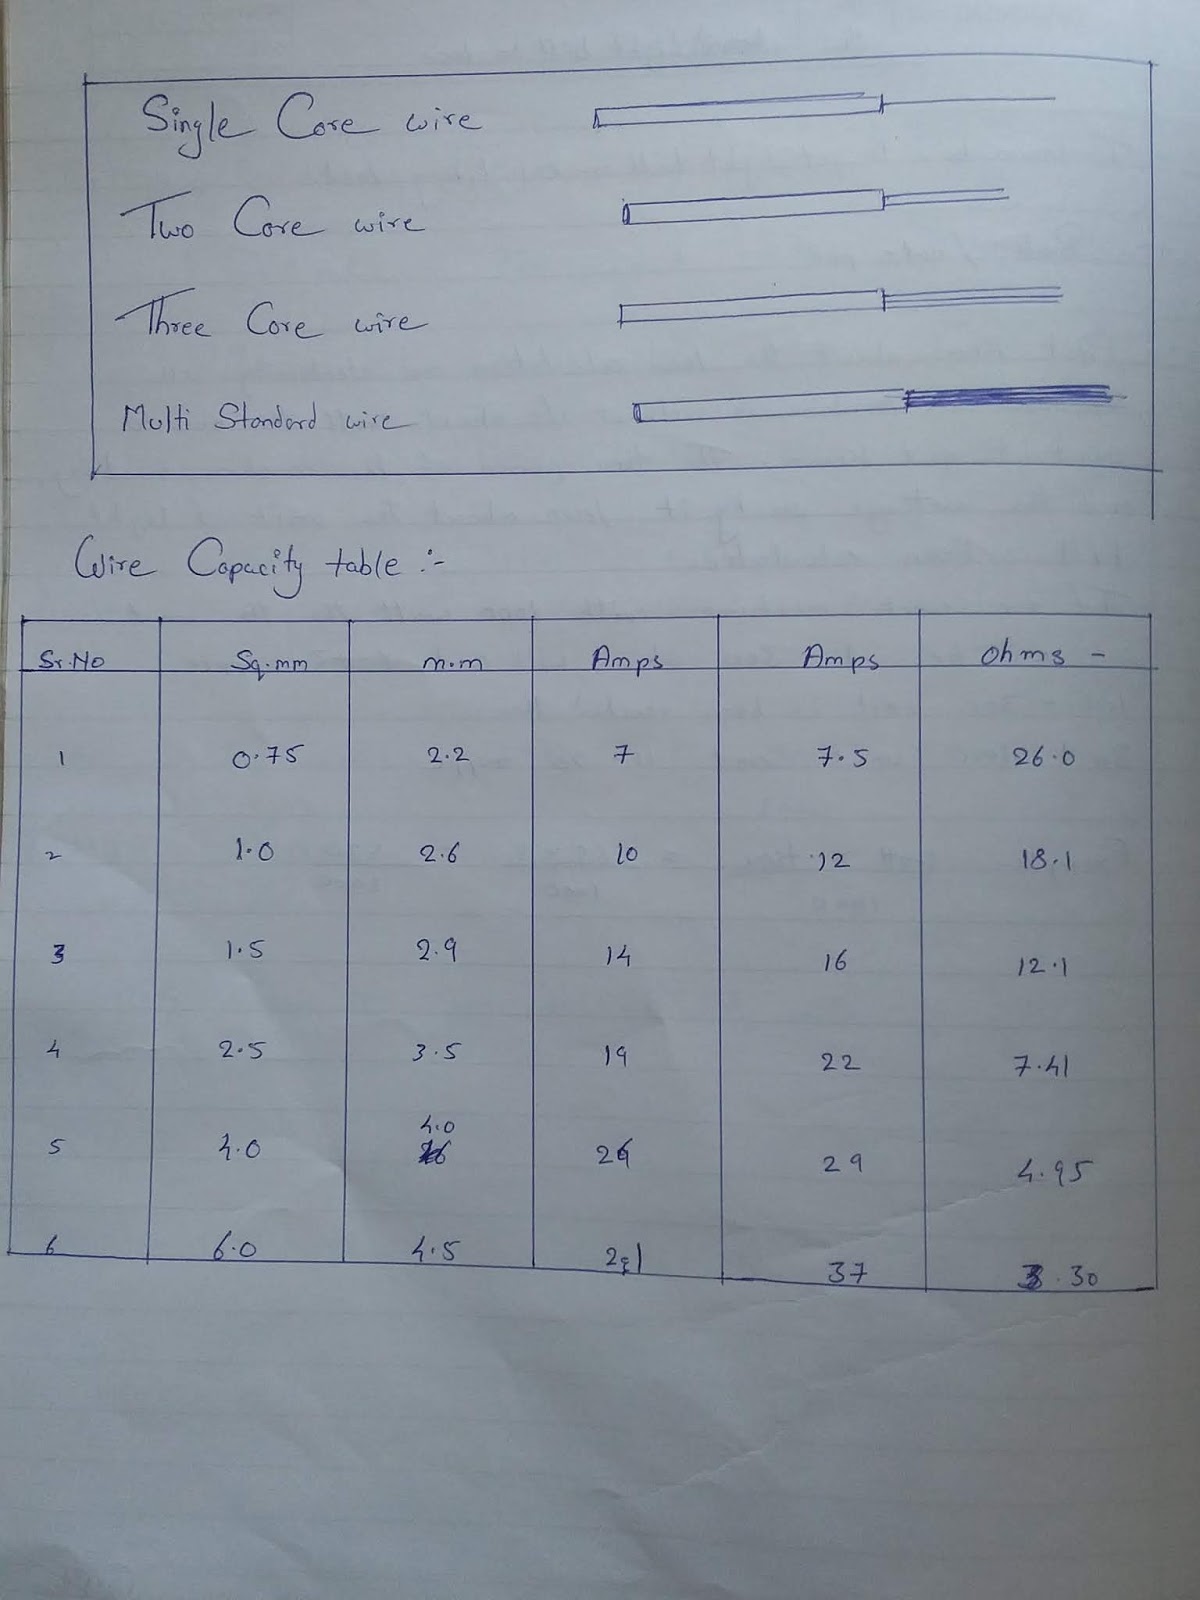 Single Core wire
Two Core wire
Three Core wire
Multi Standard wire
Wire Capacity table :-
Sr.No Sq.mm m.m Amps Amps Ohms -
1 0.75 2.2 7 7.5 26.0
2 1.0 2.6 10 12 18.1
3 1.5 2.9 14 16 12.1
4 2.5 3.5 19 22 7.41
5 4.0 4.0 29 4.95
6 6.0 4.5 37 3.30